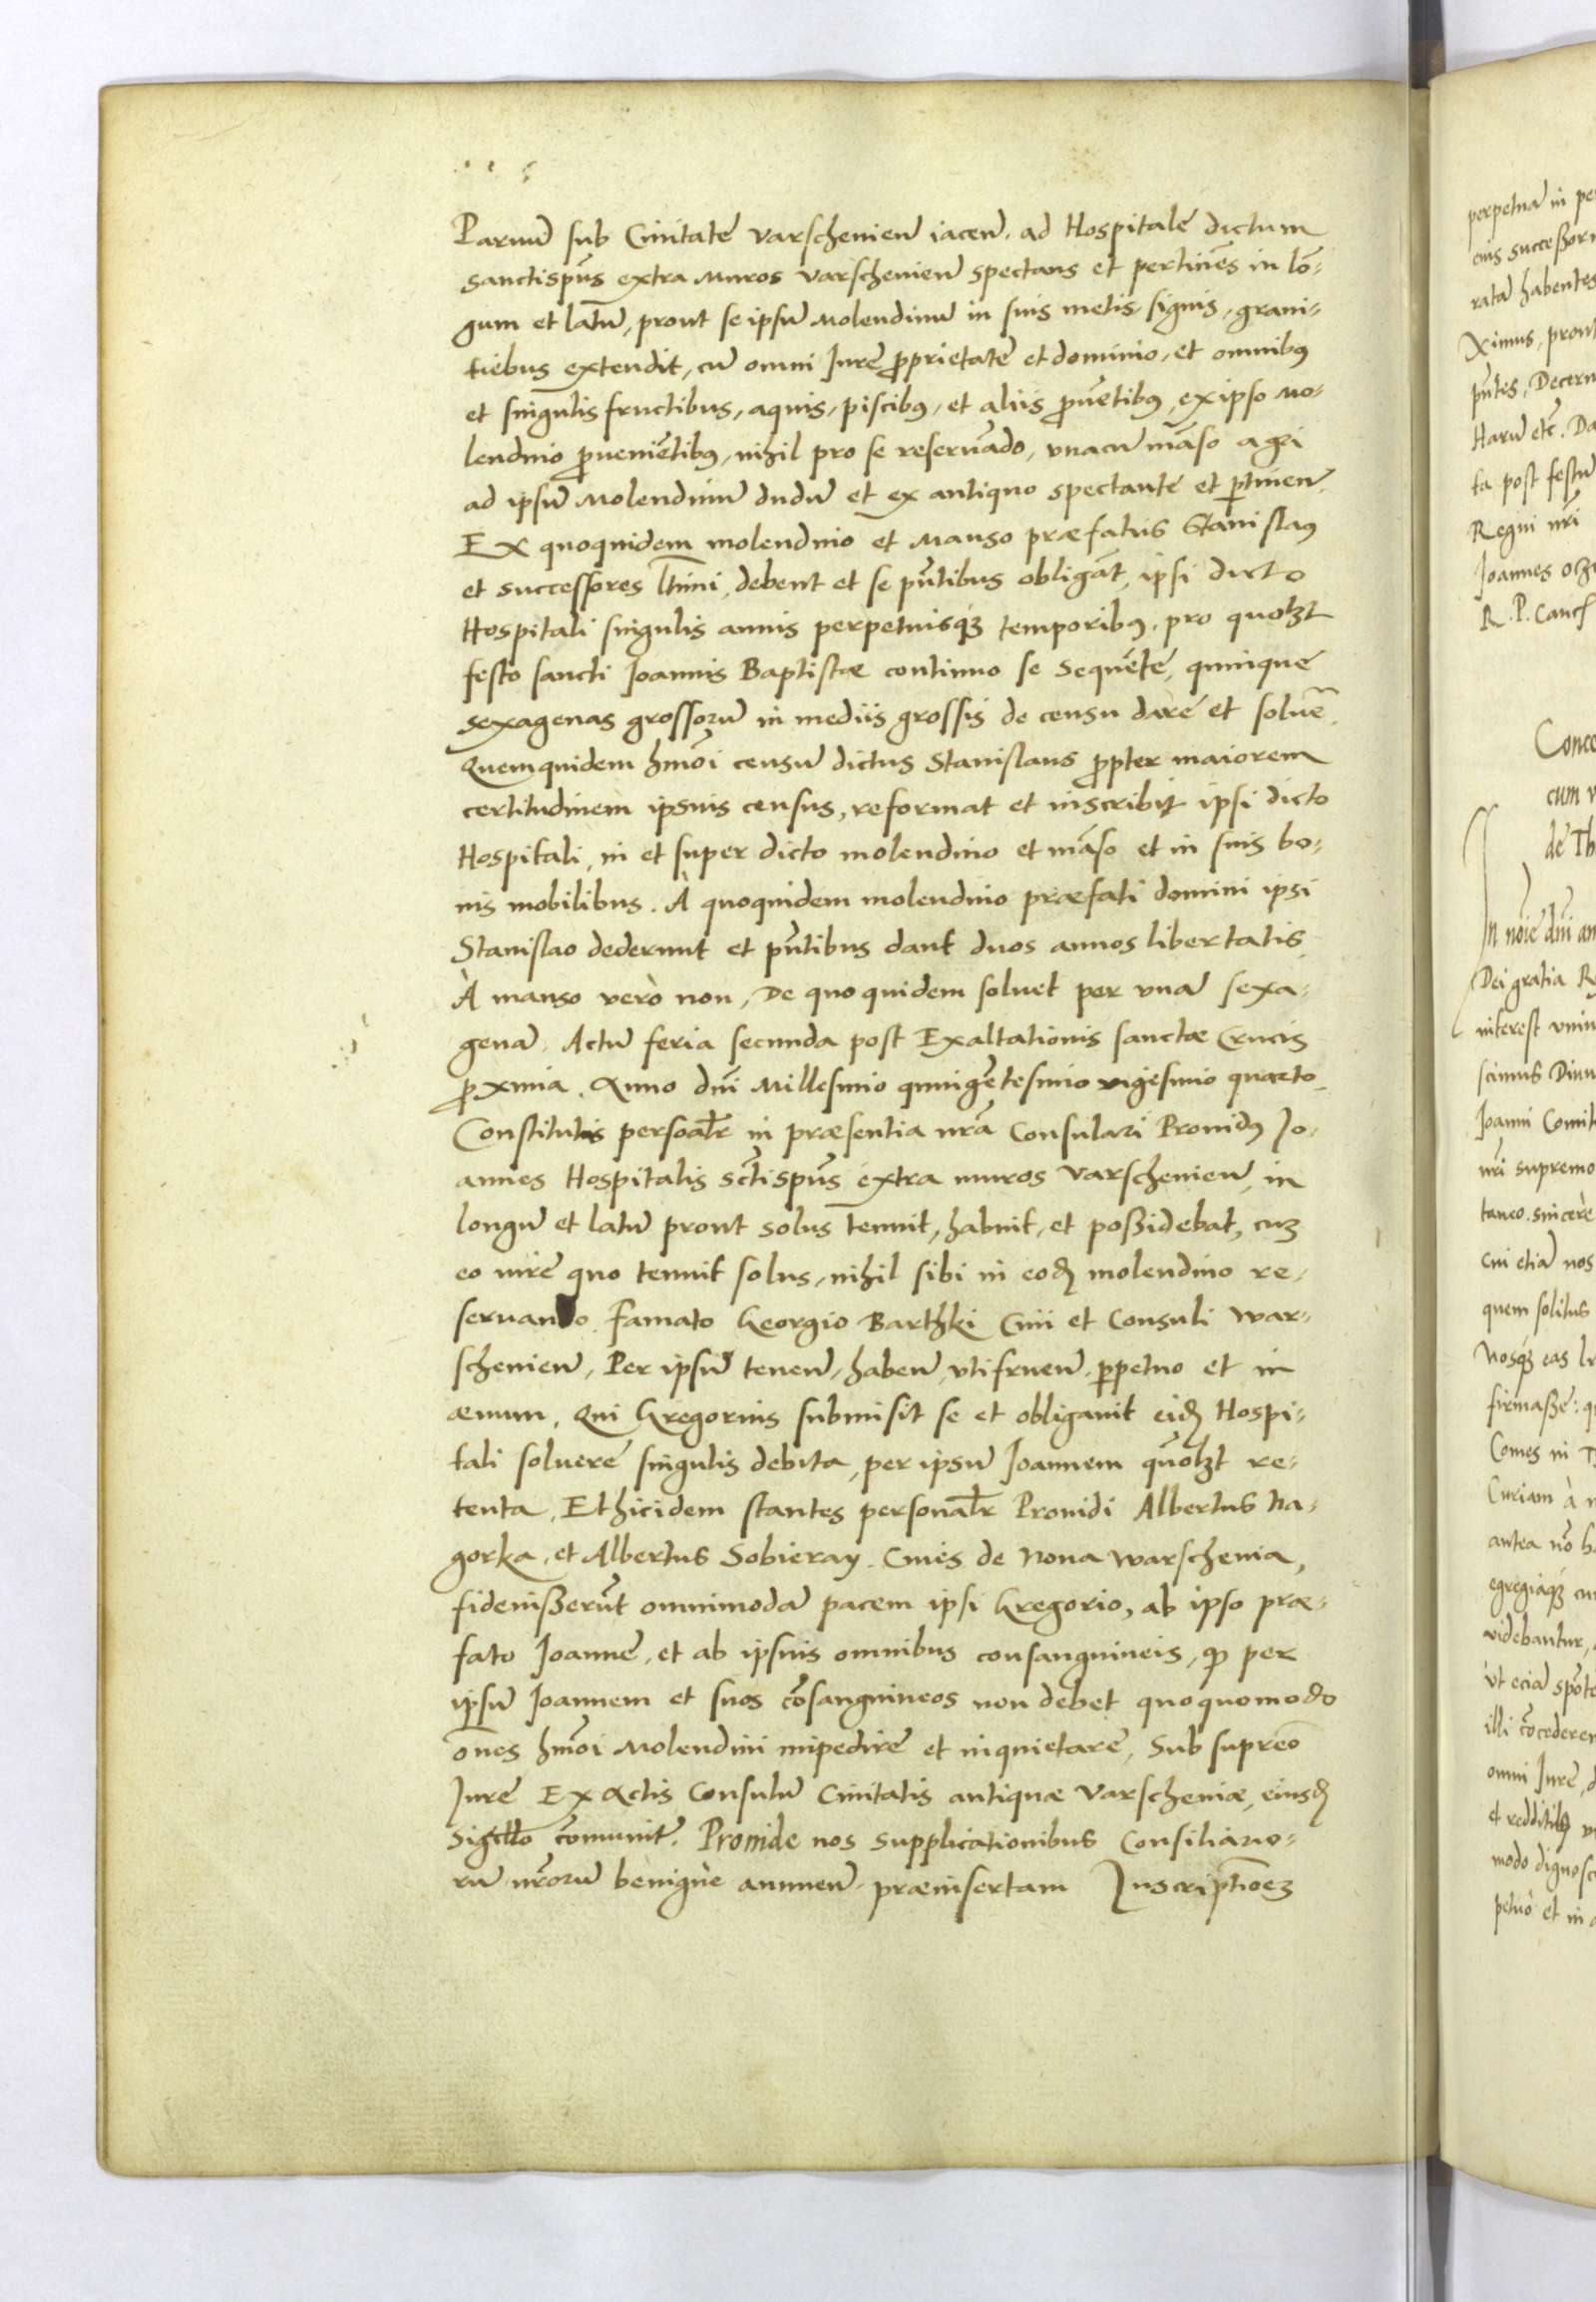 Paruũ sub Ciuitate varschenieñ iaceñ. ad Hospitale dictum
sanctispũs extra muros varschenieñ spectans et pertinẽs in lõ-
gum et latũ, prout se ipsũ Molendinũ in suis metis signis, grani-
tiebus extendit, cũ omni Iure ꝓprietate et dominio, et omnibꝰ
et singulis fructibus, aquis, piscibꝰ, et aliis ꝓuẽtibꝰ, ex ipso mo-
lendino ꝓueniẽtibꝰ, nihil pro se reseruãdo, vnacũ mãso agri
ad ipsũ Molendinũ dudũ et ex antiquo spectante et ꝑtineñ.
Ex quoquidem molendino et Manso præfatus Stanislaꝰ
et successores ltimi, debent et se pñtibus obligãt, ipsi dicto
Hospitali singulis annis perpetuisqꝫ temporibꝰ, pro quolꝫt
festo sancti Joannis Baptistæ continuo se sequẽte, quinque
sexagenas grossorũ in mediis grossis de censu dare et soluẽ.
Quemquidem hmõi censũ dictus Stanislaus ꝓpter maiorem
certitudinem ipsius census, reformat et inscribit ipsi dicto
Hospitali, in et super dicto molendino et mãso et in suis bo-
nis mobilibus. À quoquidem molendino præfati domini ipsi
Stanislao dederunt et pñtibus dant duos annos libertatis.
À manso verò non, De quo quidem soluet per vnã sexa-
genã. Actũ feria secunda post Exaltationis sanctæ Crucis
ꝓxima. Anno dñi Millesimo quingẽtesimo vigesimo quarto.
Constitutis persoalr̃ in præsentia nrã Consulari Prouidꝰ Jo-
annes Hospitalis sctĩspũs extra muros varschenieñ, in
longũ et latũ prout solus tenuit, habuit, et poßidebat, cuꝫ
eo iure quo tenuit solus, nihil sibi in eodꝫ molendino re-
seruando. Famato Georgio Barthki Ciui et Consuli War-
schenieñ, Per ipsũ teneñ, habeñ, vtifrueñ. ꝑpetuo et in
æuum, Qui Gregorius submisit se et obligauit eidꝫ Hospi-
tali soluere singulis debita, per ipsũ Joannem quolꝫt re-
tenta, Et hicidem stantes personalr̃ Prouidi Albertus Na-
gorka, et Albertus Sobieray. Ciues de Noua warschenia,
fideiußerũt omnimodã pacem ipsi Gregorio, ab ipso præ-
fato Joanne, et ab ipsius omnibus consanguineis, ꝙ per
ipsũ Joannem et suos cõsanguineos non debet quoquomodo
õnes hmõi Molendini impedire et inquietare, Sub supreõ
Jure Ex Actis Consulũ Ciuitatis antiquæ Varscheniæ, eiusdꝫ
Sigillo cõmunit̃. Prouide nos supplicationibus Consiliario-
rũ nrõrũ benigne annueñ. præinsertam Inscriptõeꝫ
perpetuã in
eius succeßor
ratã habentes
Ximus, prout
pñtes, Decern
Harũ etc̃. Da
ta post festũ
Regni nrĩ
Joannes
R. P. Canc̃
cum
de Th
In noĩe dñi
Dei gratia
interest
scimus
Joanni Comit
nrĩ supremo
taneo. sincere
cui etiã nos
quem solitus
Nosqꝫ eas
firmaße:
Comes in
Curiam à
antea nõ
egregiaqꝫ
videbantur,
vt eciã spõte
illi cõcederem
omni Jure,
et redditibꝰ
modo dignosc
petuò et in